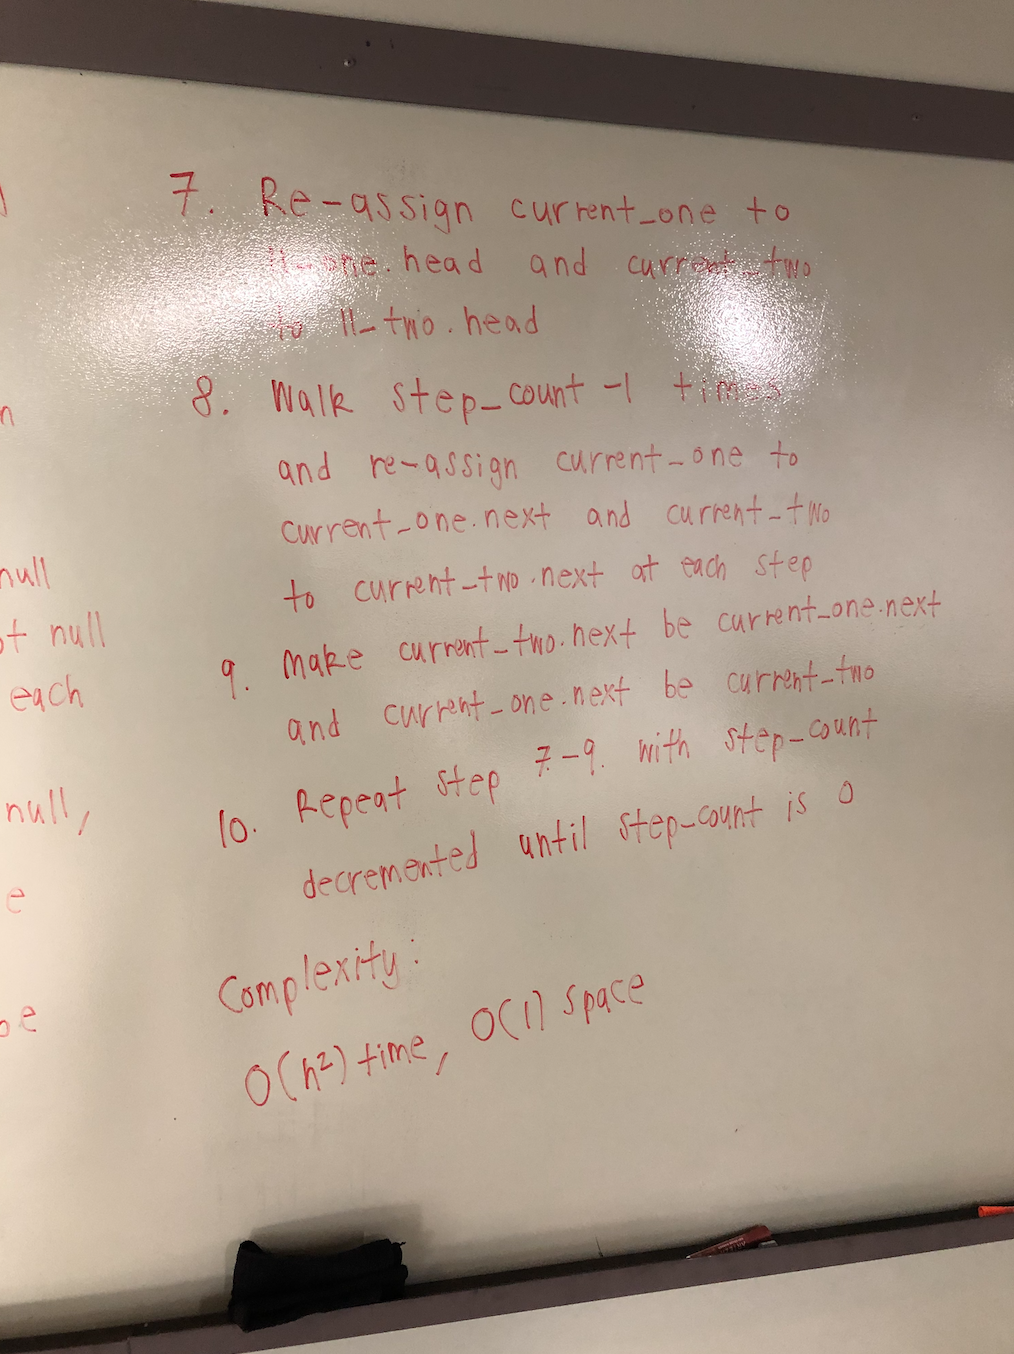 n
null
ot null
each
null,
e
be
7. Re-assign current_one to
ll-one.head and current_two
to ll_two.head
8. Walk step_count -1 times
and re-assign current_one to
current_one.next and current_two
to current_two.next at each step
9. Make current_two.next be current_one.next
and current_one.next be current_two
10. Repeat step 7.-9. with step_count
decremented until step_count is 0
Complexity:
O(n²) time, O(1) space